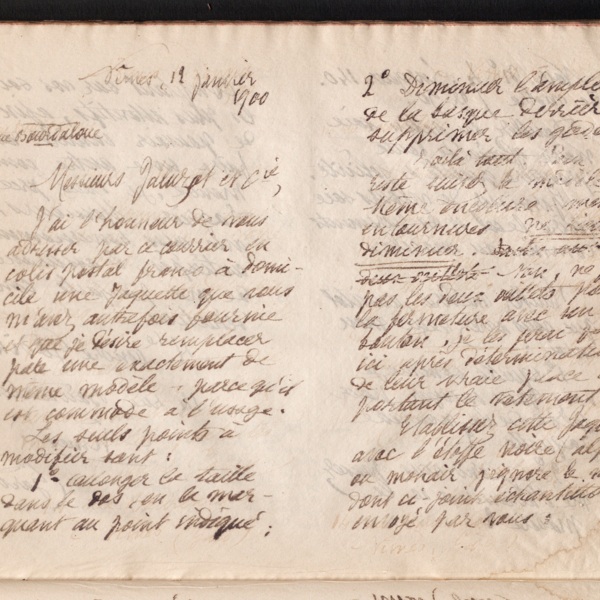 Nîmes, 12 janvier
1900
Bourdaloue
Messieurs Jaluzot et Cie,
J'ai l'honneur de vous
adresser par ce courrier en
colis postal franco à domi-
cile une jaquette que vous
m'avez autrefois fournie
et que je désire remplacer
par une exactement de
même modèle, parce qu'il
est commode à l'usage.
Les seuls points à
modifier sont:
1° allonger la taille
dans le dos, en la mar-
quant au point indiqué;
2° Diminuer l'ample
de la basque derrière
supprimer les
Voilà tout.
reste suivre le modèle
même
entournures
diminuer.
Non,
pas les deux petits
la fermeture avec son
bouton, je les ferai
ici après détermination
de leur vraie place
portant le vêtement
Etablissez cette jaqu
avec l'étoffe noire, alp
ou mohair peigné
dont ci-joint échantillon
envoyé par vous: